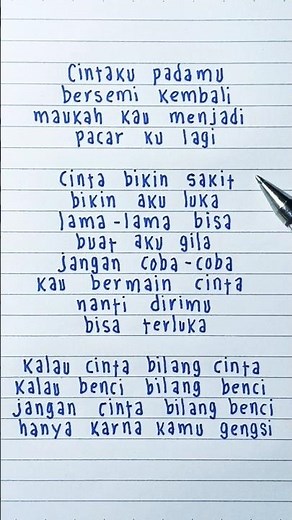 Cintaku padamu
bersemi kembali
maukah kau menjadi
pacar ku lagi
Cinta bikin sakit
bikin aku luka
lama-lama bisa
buat aku gila
jangan coba-coba
kau bermain cinta
nanti dirimu
bisa terluka
Kalau cinta bilang cinta
Kalau benci bilang benci
jangan cinta bilang benci
hanya karna kamu gengsi